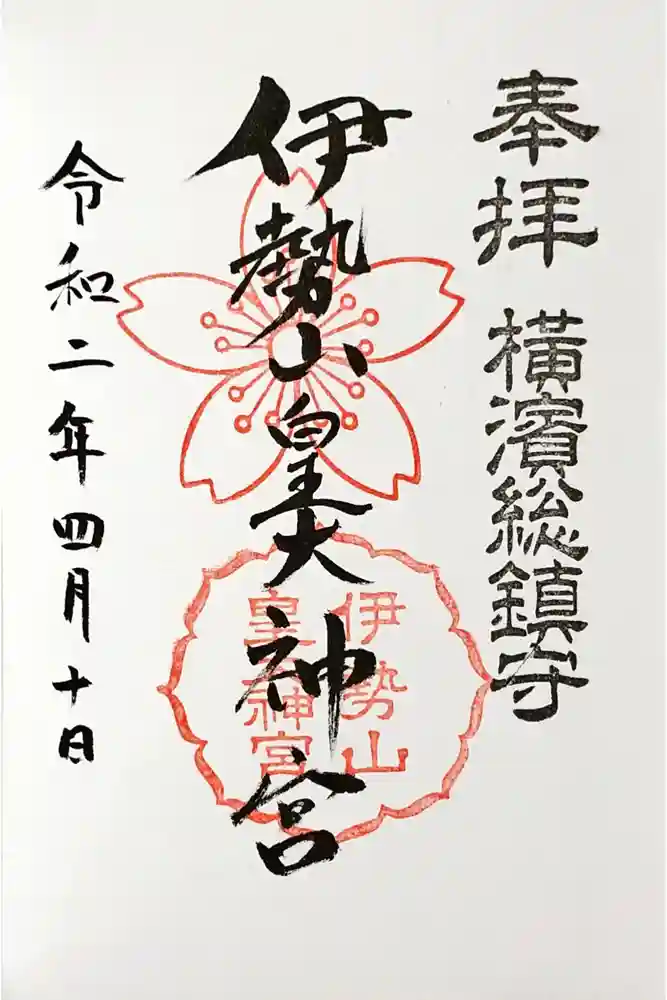 奉拝 横濱総鎮守
伊勢山皇大神宮
伊勢山
皇大神宮
令和二年四月十日